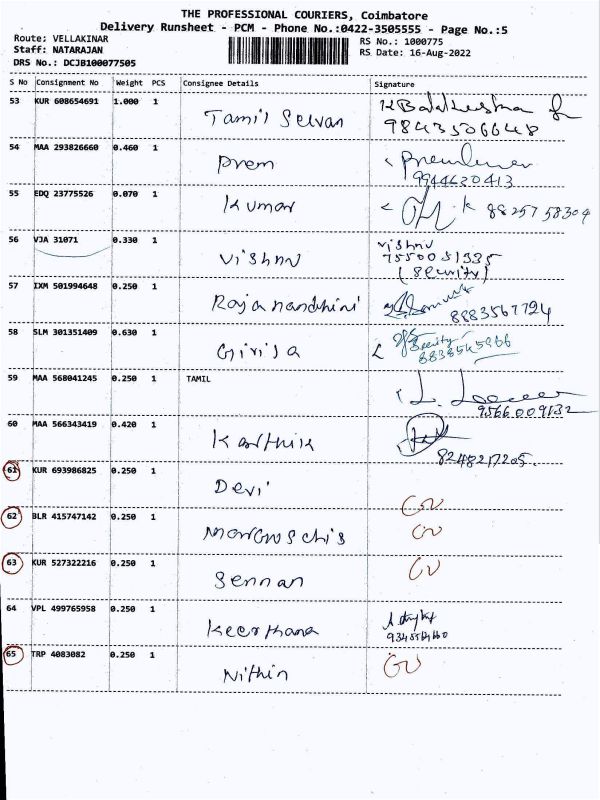 THE PROFESSIONAL COURIERS, Coimbatore
Delivery Runsheet - PCM - Phone No.:0422-3505555 - Page No.:5
Route: VELLAKINAR
Staff: NATARAJAN
DRS No.: DCJB100077505
RS No.: 1000775
RS Date: 16-Aug-2022
S No Consignment No Weight PCS Consignee Details Signature
53 KUR 608654691 1.000 1 Tamil Selvan
9843506648
54 MAA 293826660 0.460 1 Prem
9944620413
55 EDQ 23775526 0.070 1 Kumar K 8825758304
56 VJA 31071 0.330 1 Vishnu Vishnu
7550031335
(Security)
57 IXM 501994648 0.250 1 Rajanandhini
8883567794
58 SLM 301351409 0.630 1 Girija
Security
59 MAA 568041245 0.250 1 TAMIL
9566009132
60 MAA 566343419 0.420 1 Karthik
8248217205.
61 KUR 693986825 0.250 1 Devi
62 BLR 415747142 0.250 1
63 KUR 527322216 0.250 1 Sennan
64 VPL 499765958 0.250 1 Keerthana
65 TRP 4083082 0.250 1 Nithin